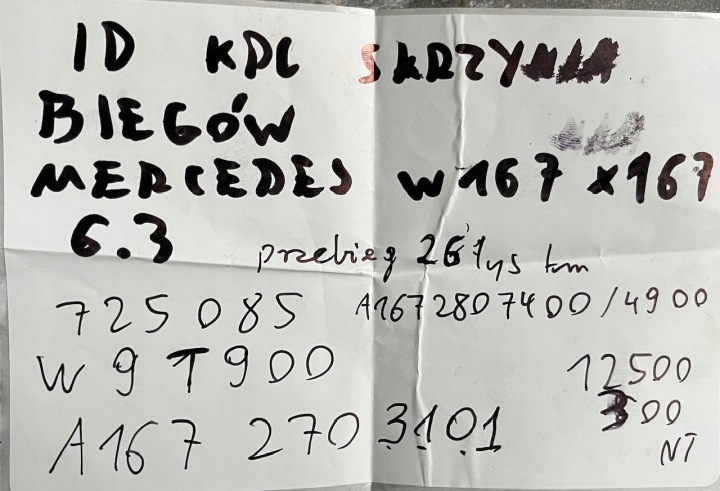 ID KPL SKRZYNIA
BIEGÓW
MERCEDES W167 X167
6.3 przebieg 26 tys km
725085 A1672807400/4900
W9T900 12500
300
A167 270 3101 NT